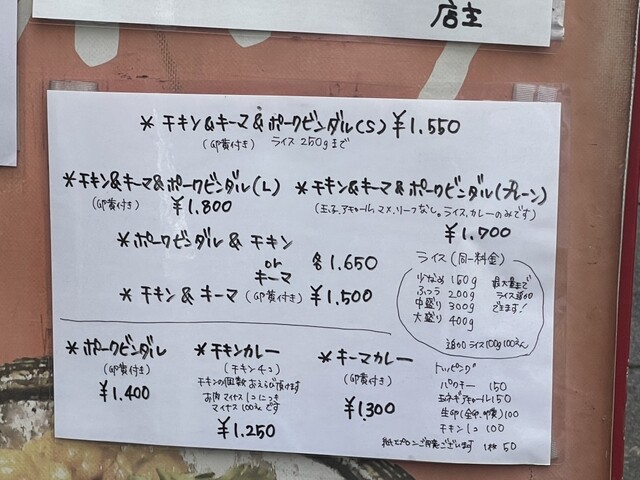 店主
* チキン&キーマ&ポークビンダル(S) ¥1.550
(卵黄付き) ライス 250gまで
* チキン&キーマ&ポークビンダル(L)
(卵黄付き) ¥1.800
* チキン&キーマ&ポークビンダル(プレーン)
(玉子、アチャール、マメ、リーフなし。ライス、カレーのみです)
¥1.700
* ポークビンダル & チキン
or
キーマ
各1.650
* チキン & キーマ (卵黄付き) ¥1.500
ライス (同一料金)
少なめ 150g
ふつう 200g
中盛り 300g
大盛り 400g
最大量まで
ライス追加
できます!
追加ライス100g100えん
* ポークビンダル
(卵黄付き)
¥1.400
* チキンカレー
(チキン4コ)
チキンの個数おえらび頂けます
お肉マイナス1コにつき
マイナス100えんです
¥1.250
* キーマカレー
(卵黄付き)
¥1.300
トッピング
パクチー 150
玉ネギアチャール150
生卵(全卵、卵黄)100
チキン1コ 100
紙エプロンご用意ございます 1枚 50